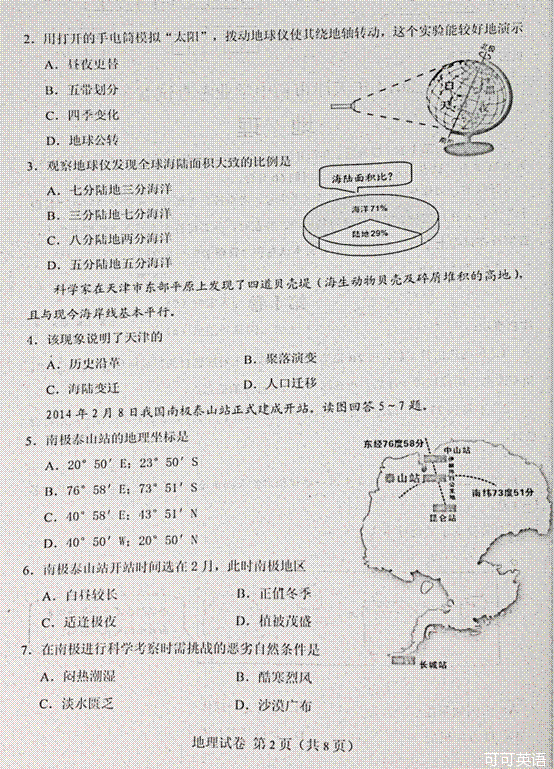 2. 用打开的手电筒模拟“太阳”，拨动地球仪使其绕地轴转动，这个实验能较好地演示
A. 昼夜更替
B. 五带划分
C. 四季变化
D. 地球公转
3. 观察地球仪发现全球海陆面积大致的比例是
A. 七分陆地三分海洋
B. 三分陆地七分海洋
C. 八分陆地两分海洋
D. 五分陆地五分海洋
海陆面积比？
海洋71%
陆地29%
科学家在天津市东部平原上发现了四道贝壳堤（海生动物贝壳及碎屑堆积的高地），
且与现今海岸线基本平行。
4. 该现象说明了天津的
A. 历史沿革 B. 聚落演变
C. 海陆变迁 D. 人口迁移
2014年2月8日我国南极泰山站正式建成开站。读图回答5～7题。
5. 南极泰山站的地理坐标是
A. 20° 50′ E；23° 50′ S
B. 76° 58′ E；73° 51′ S
C. 40° 58′ E；43° 51′ N
D. 40° 50′ W；20° 50′ N
东经76度58分
中山站
泰山站
南纬73度51分
昆仑站
长城站
6. 南极泰山站开站时间选在2月，此时南极地区
A. 白昼较长 B. 正值冬季
C. 适逢极夜 D. 植被茂盛
7. 在南极进行科学考察时需挑战的恶劣自然条件是
A. 闷热潮湿 B. 酷寒烈风
C. 淡水匮乏 D. 沙漠广布
地理试卷 第2页（共8页）
可可英语